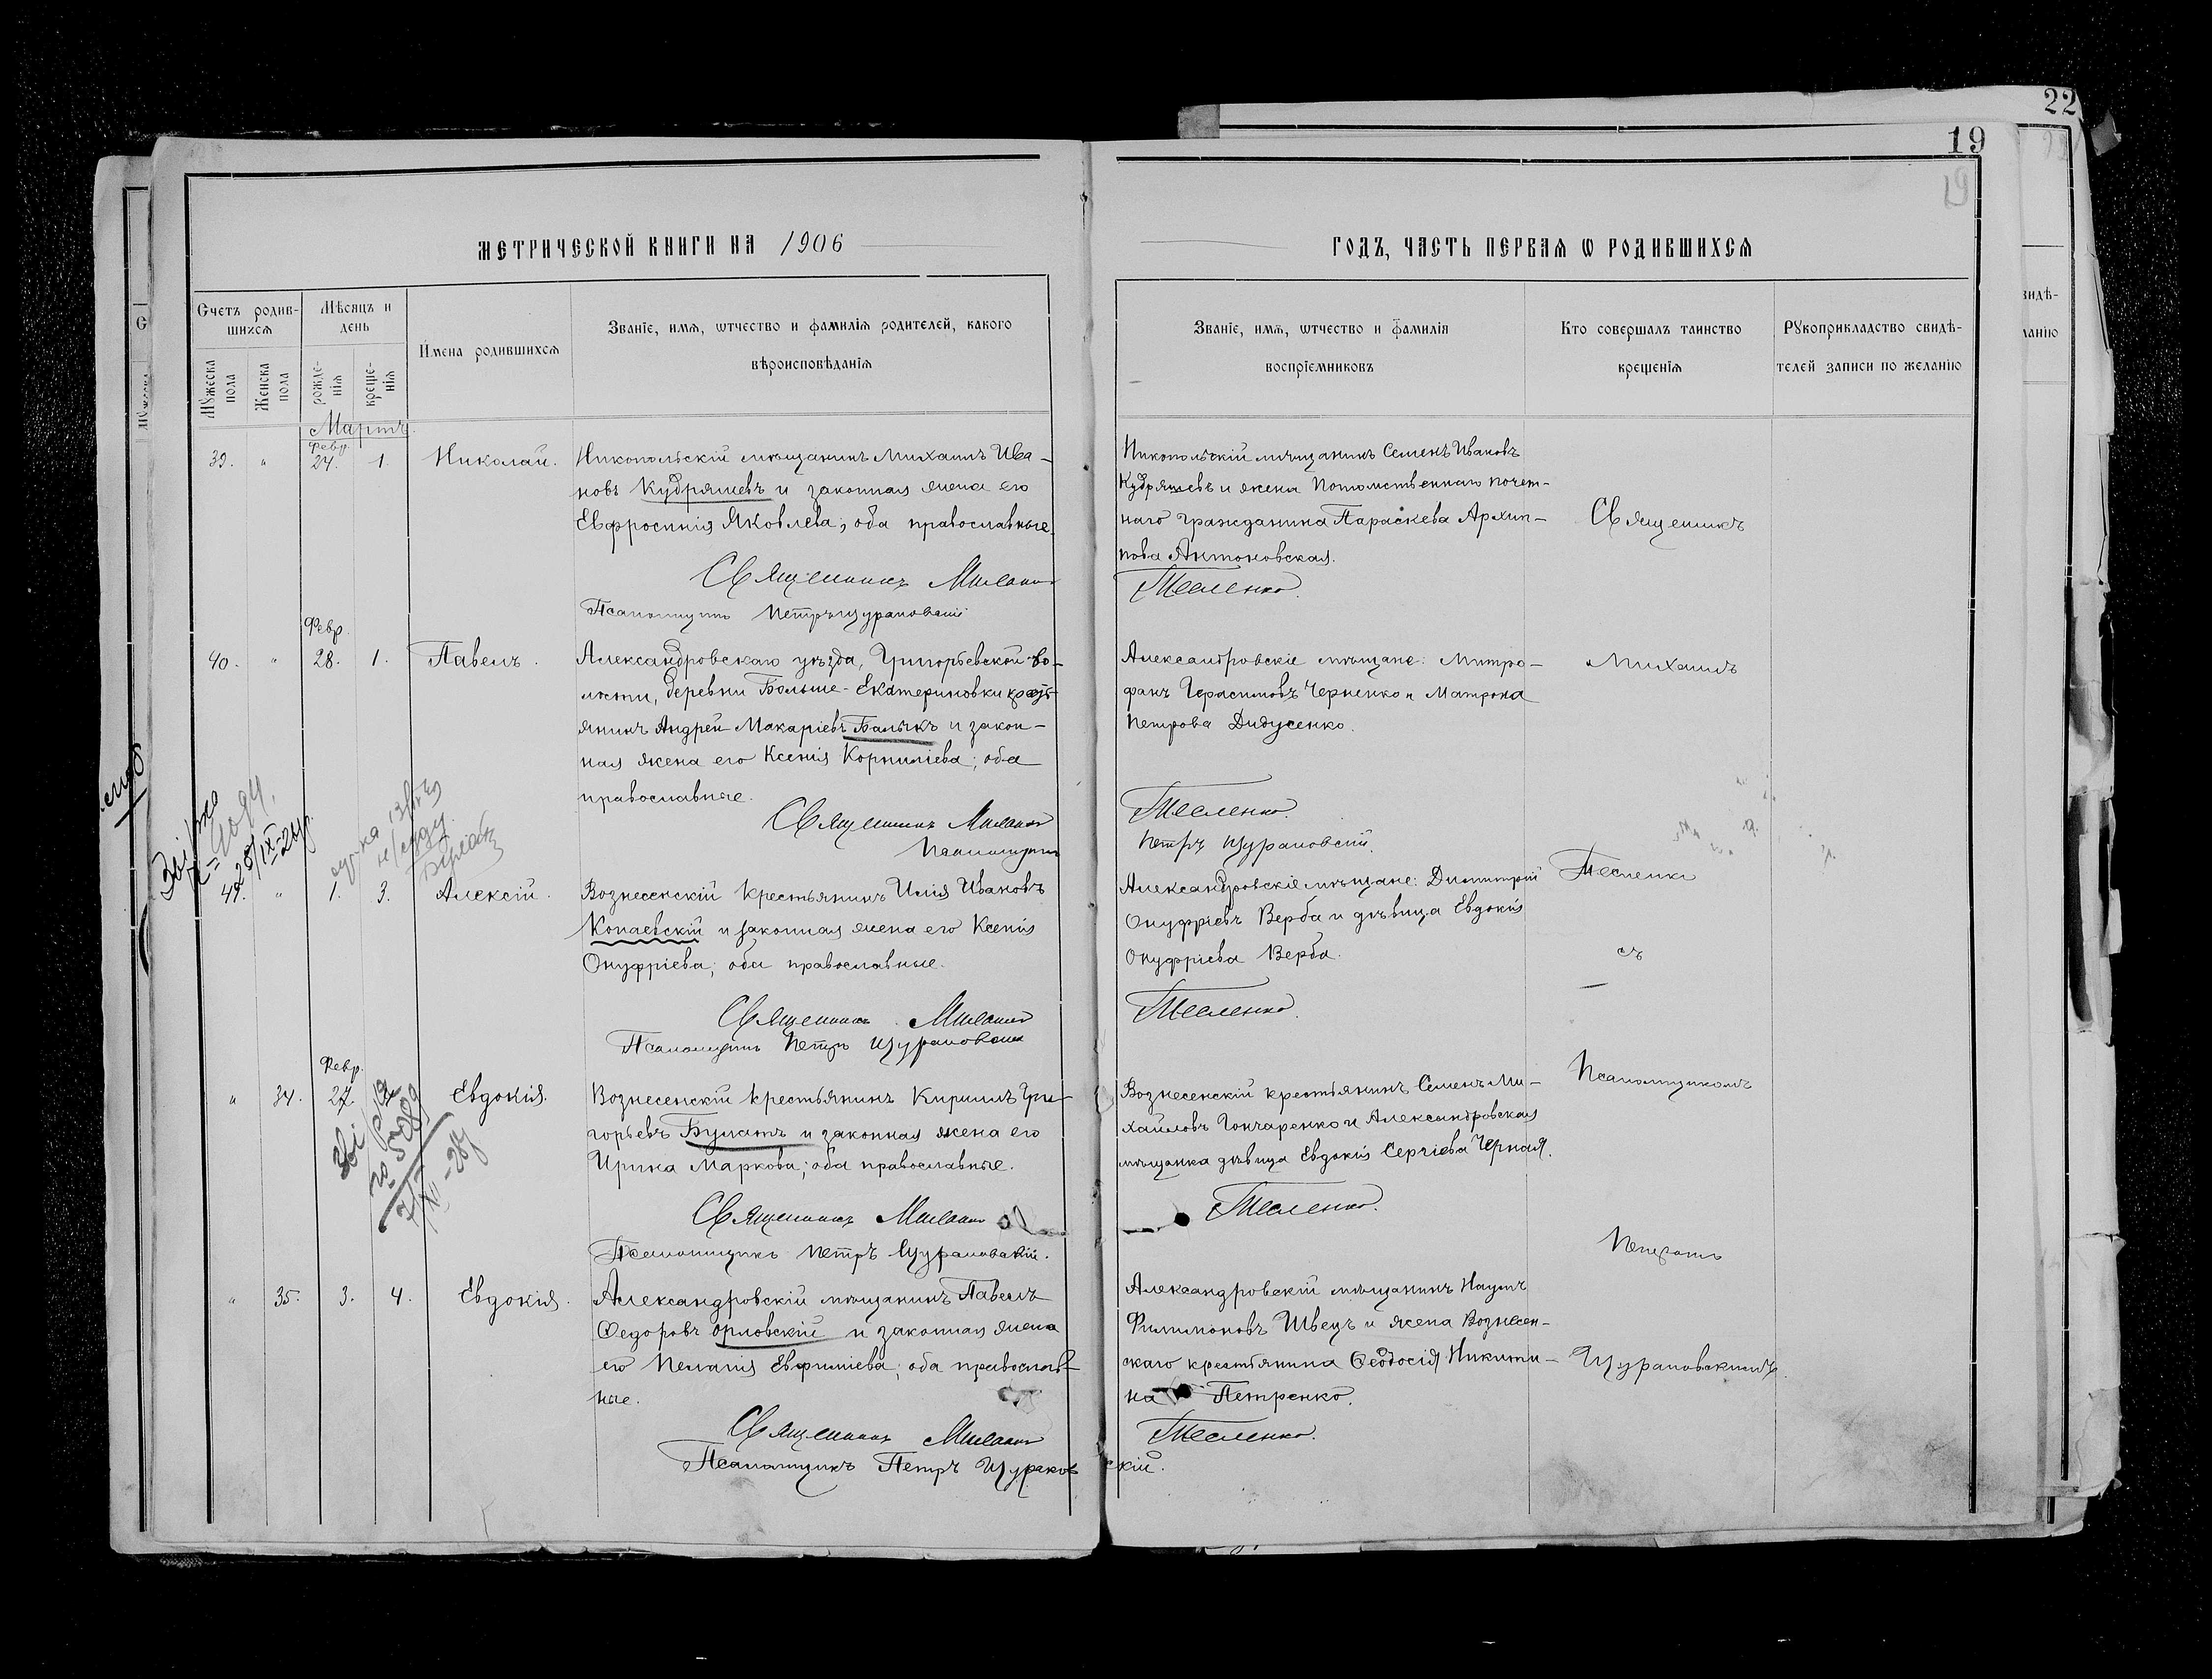 22
19
19
МЕТРИЧЕСКОЙ КНИГИ НА 1906
ГОДЪ, ЧАСТЬ ПЕРВАѦ Ѡ РОДИВШИХСѦ
Счетъ родив-
шихсѧ
Мѣсяцъ и
день
Мꙋжеска
пола
Женска
пола
рожде-
нїѧ
креще-
нїѧ
Имена родившихсѧ
Званїе, имѧ, ѡтчество и фамилїѧ родителей, какого
вѣроисповѣданїѧ
Званїе, имѧ, ѡтчество и фамилїѧ
воспрїемниковъ
Кто совершалъ таинство
крещенїѧ
Рꙋкоприкладство свидѣ-
телей записи по желанїю
Мартъ.
Февр.
39. " 24. 1. Николай.
Никопольскій мѣщанинъ Михаилъ Ива-
новъ Кудряшевъ и законная жена его
Евфросинія Яковлева; оба православные.
Священникъ
Псаломщикъ Петръ Щурановскій
Никопольскій мѣщанинъ Семенъ Ивановъ
Кудряшевъ и жена Потомственнаго почет-
наго гражданина Параскева Архип-
пова Антоновская.
Тесленко.
Священникъ
Февр.
40. " 28. 1. Павелъ.
Александровскаго уѣзда, Григорьевской во-
лости, деревни Больше-Екатериновки крестъ-
янинъ Андрей Макаріевъ Балыкъ и закон-
ная жена его Ксенія Корниліева; оба
православные.
Священникъ
Псаломщикъ
Александровскіе мѣщане: Митро-
фанъ Герасимовъ Черненко и Матрона
Петрова Дидусенко.
Тесленко.
Петръ Щурановскій.
Михаилъ
41. " 1. 3. Алексій.
Вознесенскій крестьянинъ Илія Ивановъ
Копаевскій и законная жена его Ксенія
Онуфріева; оба православные.
Священникъ
Псаломщикъ Петръ Щурановскій
Александровскіе мѣщане: Димитрій
Онуфріевъ Верба и дѣвица Евдокія
Онуфріева Верба.
Тесленко.
Тесленко
съ
Февр.
" 34. 27. Евдокія.
Вознесенскій крестьянинъ Кириллъ Гри-
горьевъ Булатъ и законная жена его
Ирина Маркова; оба православные.
Священникъ
Псаломщикъ Петръ Щурановскій.
Вознесенскій крестьянинъ Семенъ Ми-
хайловъ Гончаренко и Александровская
мѣщанка дѣвица Евдокія Сергіева Черная.
Тесленко.
Псаломщикомъ
Петромъ
" 35. 3. 4. Евдокія.
Александровскій мѣщанинъ Павелъ
Ѳедоровъ Орловскій и законная жена
его Пелагія Евфиміева; оба православ-
ные.
Священникъ
Псаломщикъ Петръ Щурановскій.
Александровскій мѣщанинъ Наумъ
Филимоновъ Швецъ и жена Вознесен-
скаго крестьянина Ѳеодосія Никити-
на Петренко.
Тесленко.
Щурановскимъ.